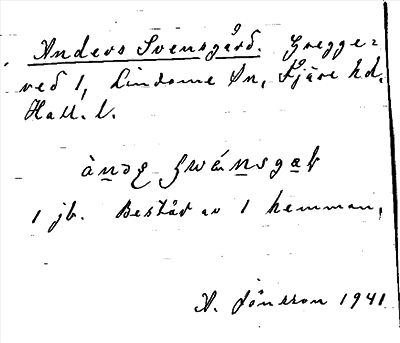 Anders Svensgård. Gregge-
red 1, Lindome Sn, Fjäre hd.
Hall. l.
ànde swánsgaʈ
1 jb. Består av 1 hemman.
A. Jönsson 1941